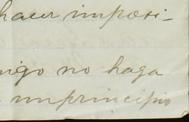 hacer imposi-
migo no haga
un principio